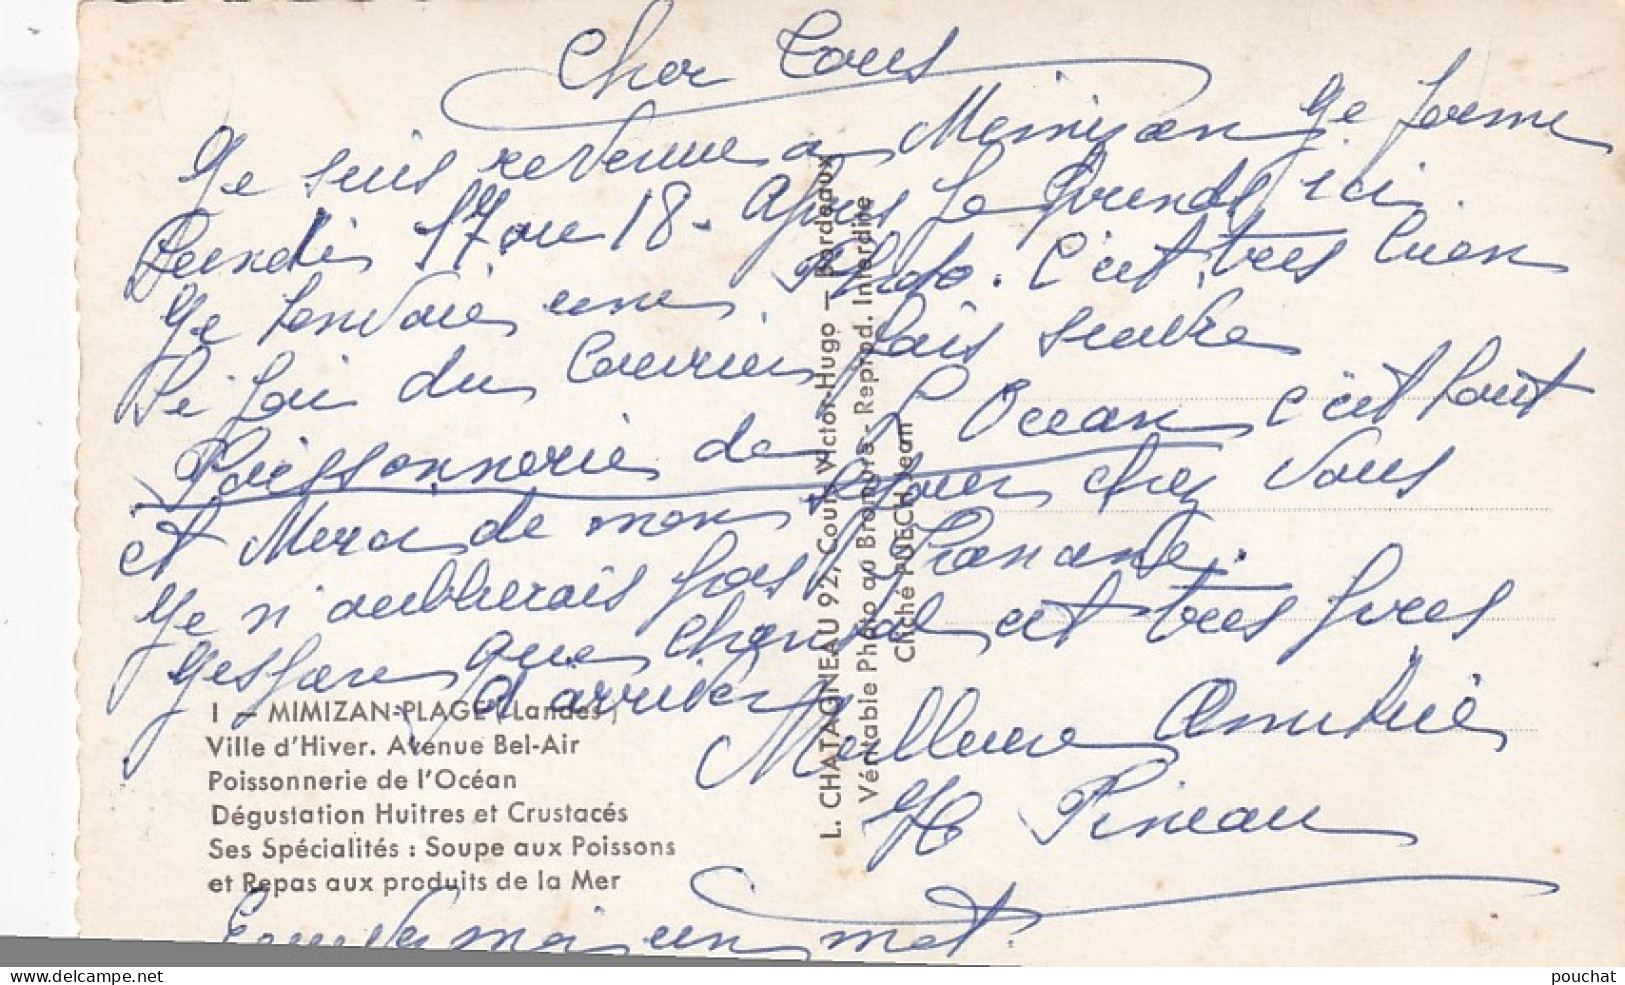 Cher Tous
Je suis revenue a Mimizan je ferme
Lundi 17 ou 18. Apres je Prends ici.
Je t'envoie une Photo. C'est tres bien
Si j'ai du Courrier fais suivre
Poissonnerie de l'Ocean c'est tout
et Merci de mon sejour chez Vous
Je n'oublierais pas
J'espere que Chantal est tres pres
d'arriver
Meilleure Amitié
Pineau
Envoyer moi un mot.
I - MIMIZAN-PLAGE (Landes)
Ville d'Hiver. Avenue Bel-Air
Poissonnerie de l'Océan
Dégustation Huitres et Crustacés
Ses Spécialités : Soupe aux Poissons
et Repas aux produits de la Mer
L. CHATAGNEAU 92, Cours Victor-Hugo - Bordeaux
Véritable Photo au Bromure - Reprod. Interdite
Cliché PUECH Jean
www.delcampe.net
pouchat